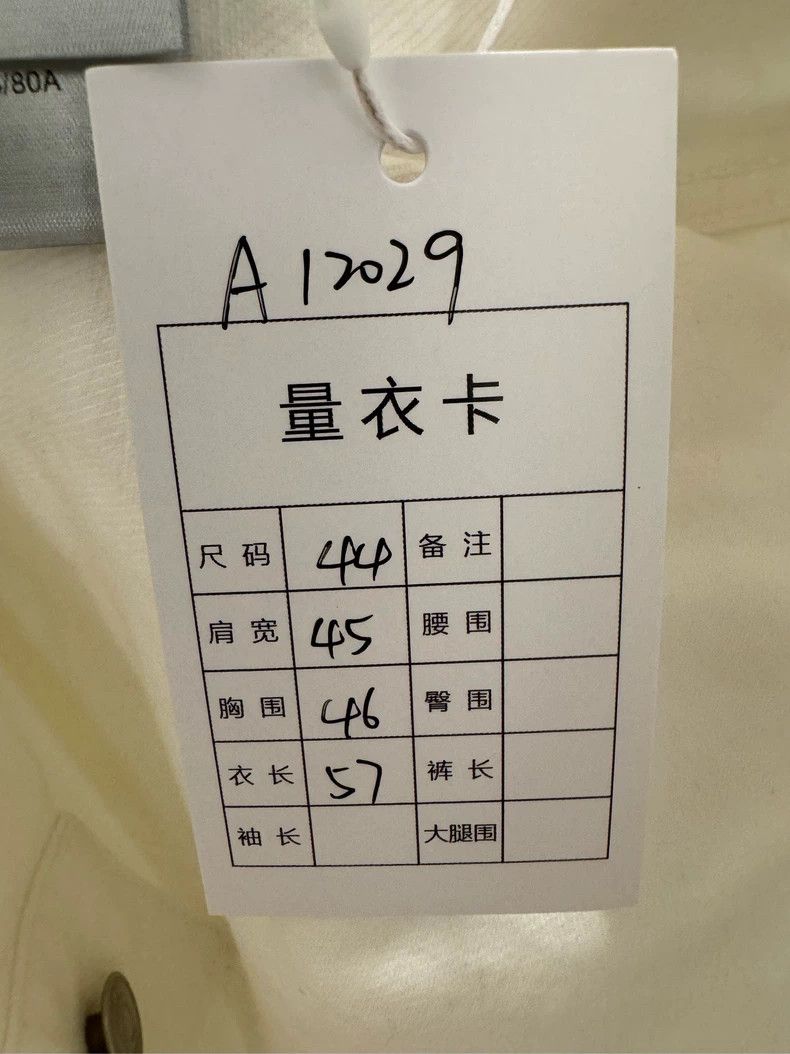 /80A
A12029
量衣卡
尺码 44 备注
肩宽 45 腰围
胸围 46 臀围
衣长 57 裤长
袖长 大腿围